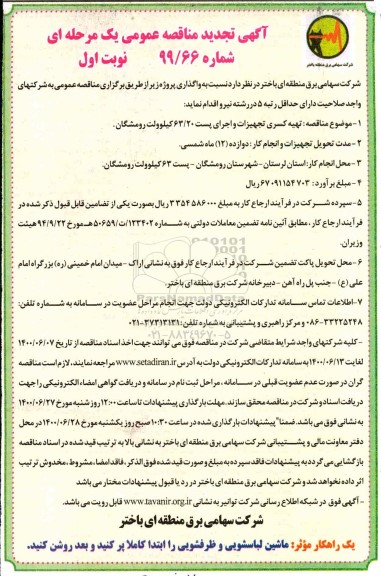 آگهی تجدید مناقصه عمومی یک مرحله ای
شماره ۹۹/۶۶ نوبت اول
شرکت سهامی برق منطقه ای باختر
شرکت سهامی برق منطقه ای باختر در نظر دارد نسبت به واگذاری پروژه زیر از طریق برگزاری مناقصه عمومی به شرکتهای
واجد صلاحیت دارای حداقل رتبه ۵ در رشته نیرو اقدام نماید:
۱-موضوع مناقصه: تهیه کسری تجهیزات و اجرای پست ۶۳/۲۰ کیلوولت رومشگان.
۲-مدت تحویل تجهیزات و انجام کار: دوازده (۱۲) ماه شمسی.
۳- محل انجام کار: استان لرستان - شهرستان رومشگان - پست ۶۳ کیلوولت رومشگان.
۴- مبلغ برآورد: ۶۷۰۹۱۱۵۴۷۰۳ ریال
۵-سپرده شرکت در فرآیند ارجاع کار به مبلغ ۳۳۵۴۵۸۶۰۰۰ ریال بصورت یکی از تضامین قابل قبول ذکر شده در
فرآیند ارجاع کار، مطابق آئین نامه تضمین معاملات دولتی به شماره ۱۲۳۴۰۲/ت۵۰۶۵۹هـ مورخ ۹۴/۹/۲۲ هیئت
وزیران.
۶-محل تحویل پاکت تضمین شرکت در فرآیند ارجاع کار فوق به نشانی اراک - میدان امام خمینی (ره) بزرگراه امام
علی (ع) - جنب پل راه آهن - دبیرخانه شرکت برق منطقه ای باختر.
۷-اطلاعات تماس سامانه تدارکات الکترونیکی دولت جهت انجام مراحل عضویت در سامانه به شماره تلفن:
۰۸۶-۳۳۲۲۵۲۴۸ و مرکز راهبری و پشتیبانی به شماره تلفن: ۰۲۱-۳۷۳۱۳۱۳۱
- کلیه شرکتهای واجد شرایط متقاضی شرکت در مناقصه فوق می توانند جهت اخذ اسناد مناقصه از تاریخ ۱۴۰۰/۰۶/۰۷
لغایت ۱۴۰۰/۰۶/۱۳ به سامانه تدارکات الکترونیکی دولت به آدرس www.setadiran.ir مراجعه نمایند. لازم است مناقصه
گران در صورت عدم عضویت قبلی در سامانه، مراحل ثبت نام در سامانه و دریافت گواهی امضاء الکترونیکی را جهت
دریافت اسناد و شرکت در مناقصه محقق سازند. مهلت بارگذاری پیشنهادات تا ساعت ۱۲:۰۰ روز شنبه مورخ ۱۴۰۰/۰۶/۲۷
به نشانی فوق می باشد. ضمنا" پیشنهادات بارگذاری شده در ساعت ۱۰:۳۰ صبح روز یکشنبه مورخ ۱۴۰۰/۰۶/۲۸ در محل
دفتر معاونت مالی و پشتیبانی شرکت سهامی برق منطقه ای باختر به نشانی بالا به ترتیب قید شده در اسناد مناقصه
بازگشایی می گردد به پیشنهادات فاقد سپرده به مبلغ و صورت قید شده فوق الذکر، فاقد امضا، مشروط، مخدوش ترتیب
اثر داده نخواهد شد و شرکت سهامی برق منطقه ای باختر در رد یا قبول پیشنهادات مختار می باشد
- آگهی فوق در شبکه اطلاع رسانی شرکت توانیر به نشانی www.tavanir.org.ir قابل رویت می باشد.
شرکت سهامی برق منطقه ای باختر
یک راهکار مؤثر: ماشین لباسشویی و ظرفشویی را ابتدا کاملا پر کنید و بعد روشن کنید.